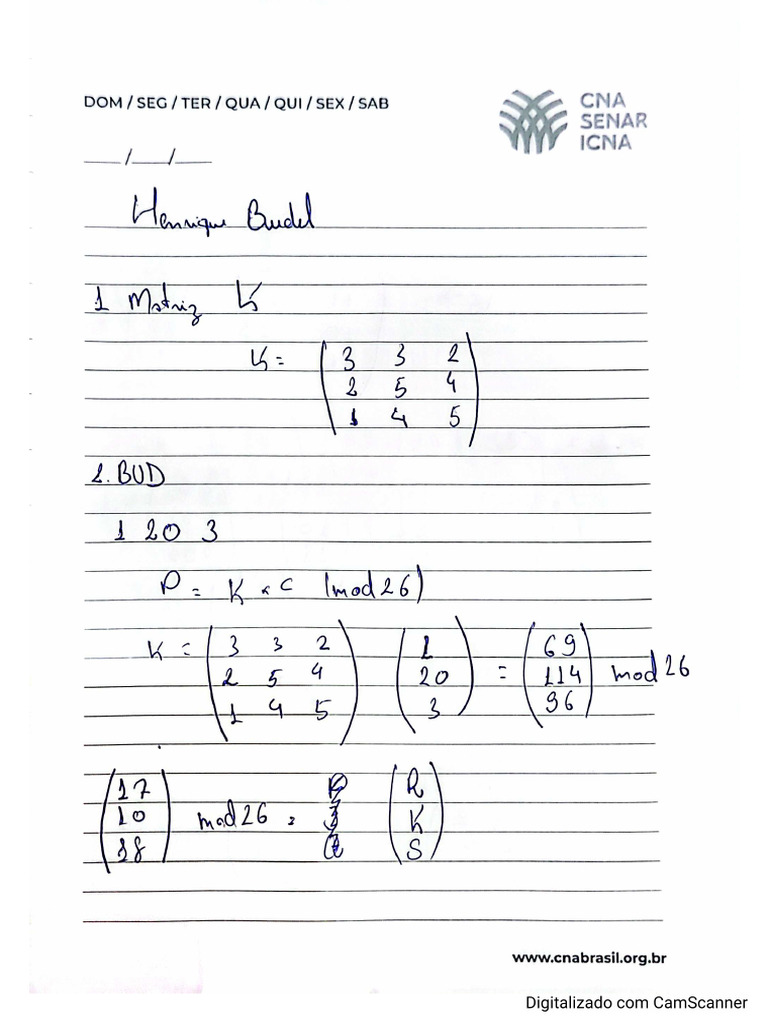 DOM / SEG / TER / QUA / QUI / SEX / SAB
CNA
SENAR
ICNA
___/___/___
Henrique Budel
1 Matriz K
K = ( 3 3 2
2 5 4
1 4 5 )
2. BUD
1 20 3
P = K × C (mod 26)
K = ( 3 3 2 ) ( 1 ) = ( 69 )
( 2 5 4 ) ( 20 ) = ( 114 ) mod 26
( 1 4 5 ) ( 3 ) ( 96 )
( 17 ) ( R )
( 10 ) mod 26 = ( K )
( 18 ) ( S )
www.cnabrasil.org.br
Digitalizado com CamScanner